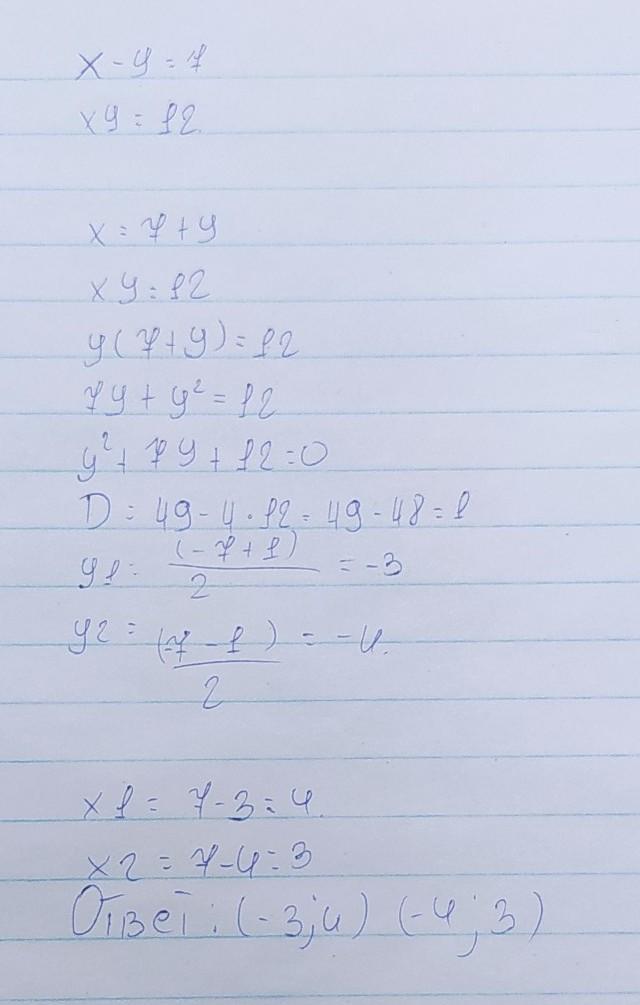 x - y = 7
xy = 12
x = 7 + y
xy = 12
y(7 + y) = 12
7y + y² = 12
y² + 7y + 12 = 0
D = 49 - 4 · 12 = 49 - 48 = 1
y1 = (-7+1)/2 = -3
y2 = (-7-1)/2 = -4.
x1 = 7 - 3 = 4.
x2 = 7 - 4 = 3
Ответ: (-3; 4) (-4; 3)